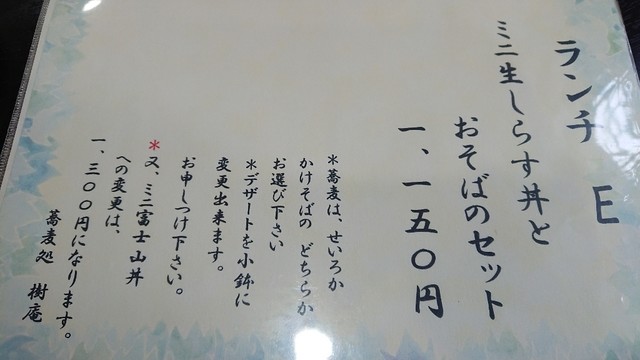 ランチ E
ミニ生しらす丼と
おそばのセット
一、一五〇円
*蕎麦は、せいろか
かけそばの どちらか
お選び下さい
*デザートを小鉢に
変更出来ます。
お申しつけ下さい。
*又、ミニ富士山丼
への変更は、
一、三〇〇円になります。
蕎麦処 樹庵